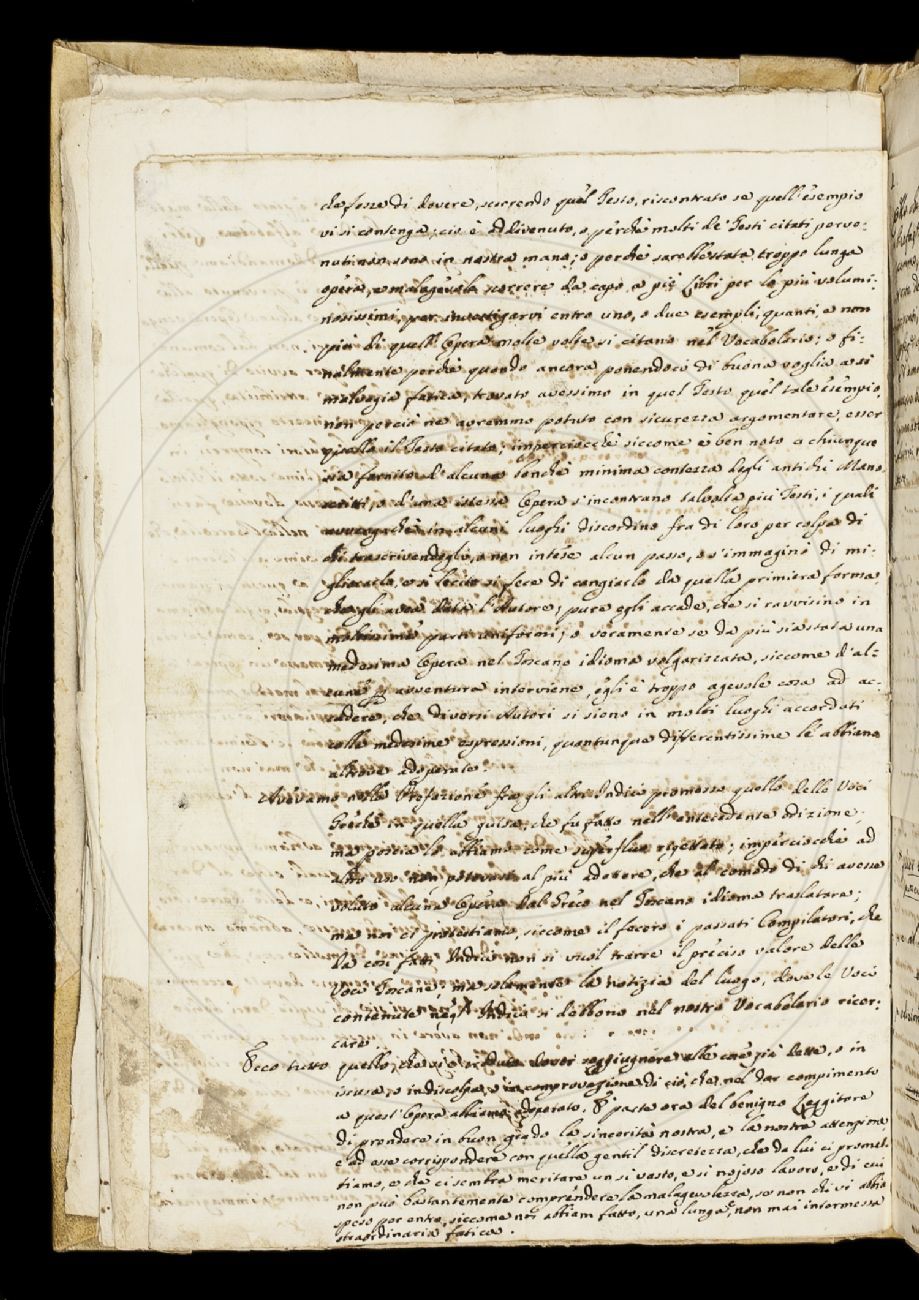 da fosse di dovere, scorrendo quel Testo, riscontrato se quell'esempio
vi si contenga; ciò è addivenuto, o perchè molti de' Testi citati perve-
nuti non sono in nostra mano; o perchè sarebbe stata troppo lunga
opera, e malagevole scorrere da capo a piè Libri per lo più volumi-
nosissimi, per investigarvi entro uno, o due esempli, quanti, e non
più di quell'Opera molte volte si citano nel Vocabolario; o fi-
nalmente perchè quando ancora ponendoci di buona voglia a sì
malvagia fatica, trovato avessimo in quel Testo quel tale esempio,
non perciò ne avremmo potuto con sicurezza argomentare, esser
quello il Testo citato; imperciocchè siccome è ben noto a chiunque
sia fornito d'alcuna benchè minima contezza degli antichi Mano-
scritti, o d'una istessa Opera s'incontrano talvolta più Testi, i quali
avvegnachè in alcuni luoghi discordino fra di loro per colpa di
chi trascrivendogli, o non intese alcun passo, o s'immaginò di mi-
gliorarlo, o si lecito si fece di cangiarlo da quella primiera forma,
che gli avea data l'Autore; pure egli accade, che si ravvisino in
moltissime parti uniformi; o veramente se da più sia stata una
medesima Opera nel Toscano idioma volgarizzata, siccome d'al-
cune per avventura interviene, egli è troppo agevole cosa ad ac-
cadere, che diversi Autori si siano in molti luoghi accordati
colle medesime espressioni, quantunque differentissime le abbiano
altrove adoperate.
Avevamo nella Prefazione fra gli altri Indici promesso quello delle Voci
Greche in quella guisa, che fu fatto nell'antecedente edizione;
ma poscia lo abbiamo come superfluo rigettato; imperciocchè ad
altro uso non potevasi al più adoperare, che al comodo di chi avesse
voluto alcuna Opera dal Greco nel Toscano idioma traslatare;
ma noi ci protestiamo, siccome il fecero i passati Compilatori, che
da così fatti Indici non si vuol trarre il preciso valore delle
Voci Toscane, ma solamente la notizia del luogo, dove le Voci
contenute negl'Indici si debbono nel nostro Vocabolario ricer-
care.
Ecco tutto quello, che ci è veduto dover soggiugnere alle cose più dette, o in
iscusa, o in discolpa, o in comprovagione di ciò, che nel dar compimento
a quest'Opera abbiamo adoperato. È parte ora del benigno Leggitore
di prendere in buon grado la sincerità nostra, e la nostra attenzione,
e ad esse corrispondere con quella gentil discretezza, che da lui ci promet-
tiamo, e che ci sembra meritare un sì vasto, e sì nojoso lavoro, e di cui
non può bastantemente comprendere la malagevolezza, se non chi vi abbia
speso per entro, siccome noi abbiam fatto, una lunga, e non mai intermessa
straordinaria fatica.